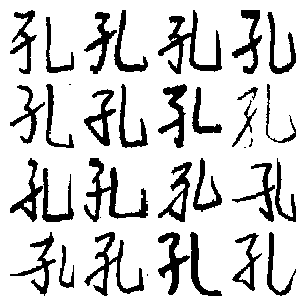 孔孔孔孔
孔孔孔孔
孔孔孔孔
孔孔孔孔